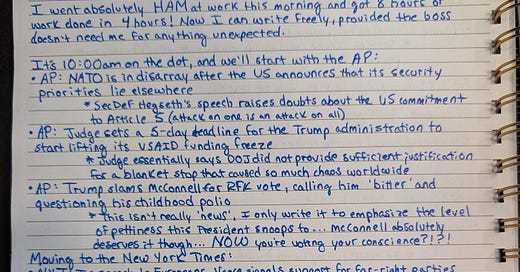 I went absolutely HAM at work this morning and got 8 hours of
work done in 4 hours! Now I can write freely, provided the boss
doesn't need me for anything unexpected.
It's 10:00am on the dot, and we'll start with the AP:
• AP: NATO is in disarray after the US announces that its security
priorities lie elsewhere
* SecDef Hegseth's speech raises doubts about the US commitment
to Article 5 (attack on one is an attack on all)
• AP: Judge sets a 5-day deadline for the Trump administration to
start lifting its USAID funding freeze
* Judge essentially says DOJ did not provide sufficient justification
for a blanket stop that caused so much chaos worldwide
• AP: Trump slams McConnell for RFK vote, calling him 'bitter' and
questioning his childhood polio
* This isn't really 'news', I only write it to emphasize the level
of pettiness this President snoops to... McConnell absolutely
deserves it though... NOW you're voting your conscience?!?!
Moving to the New York Times:
signals support for far-right parties